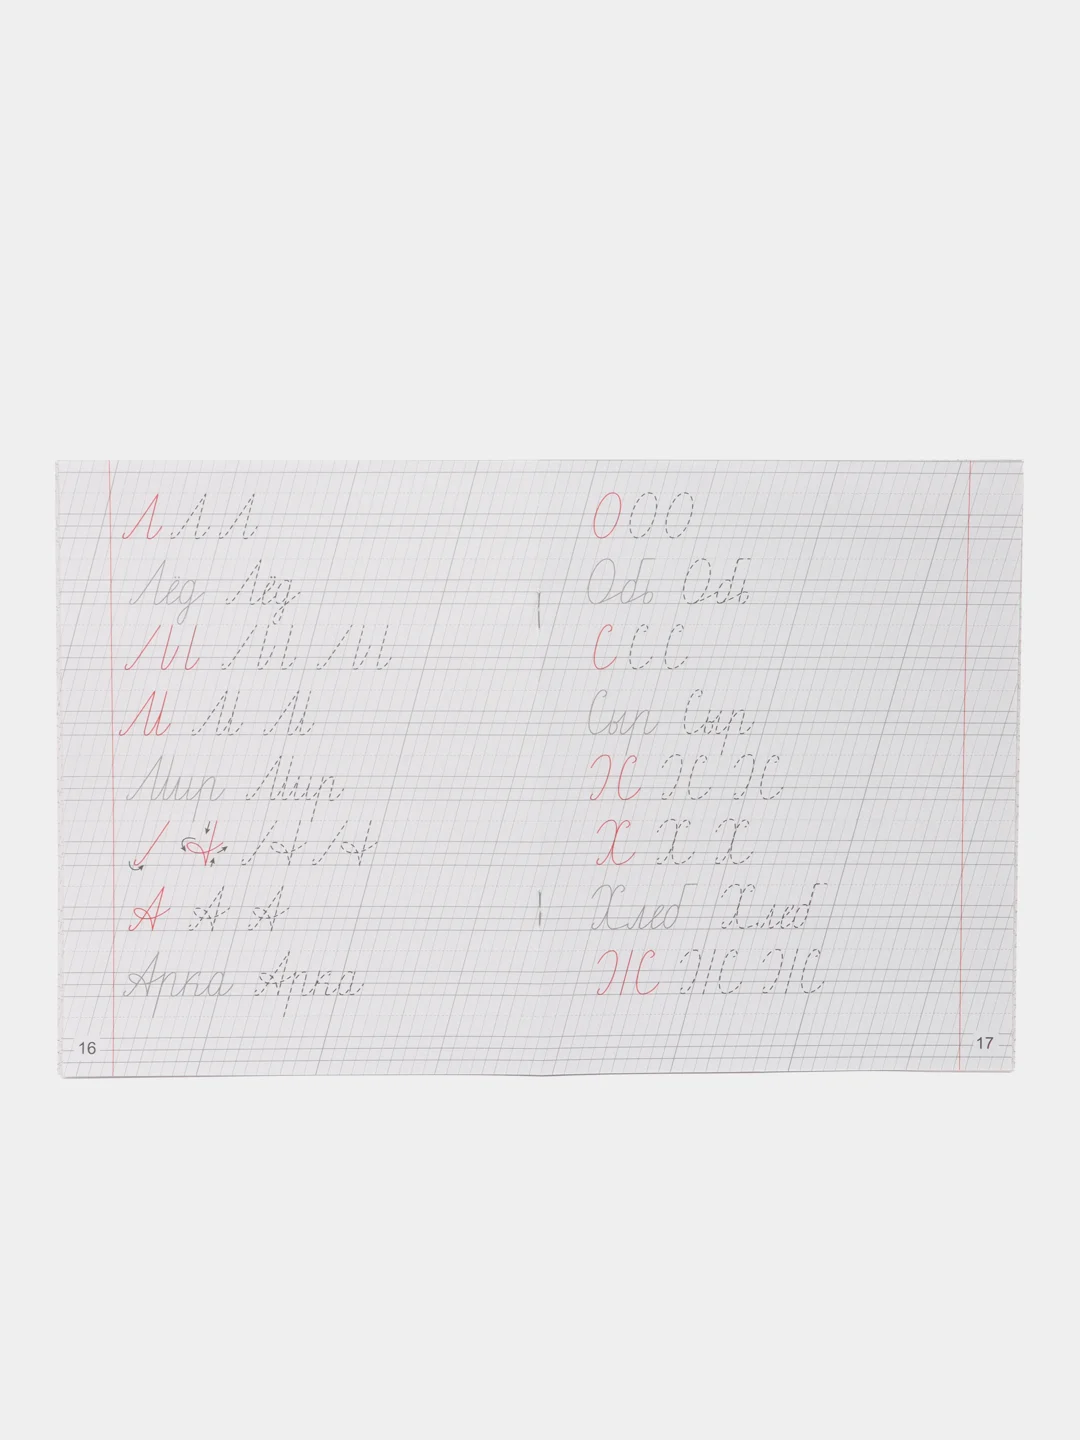 Л Л Л
Лёд Лёд
М М М
Мир Мир
А А А
Арка Арка
16
О О О
Обь Обь
С С С
Сыр Сыр
Х Х Х
Хлеб Хлеб
17